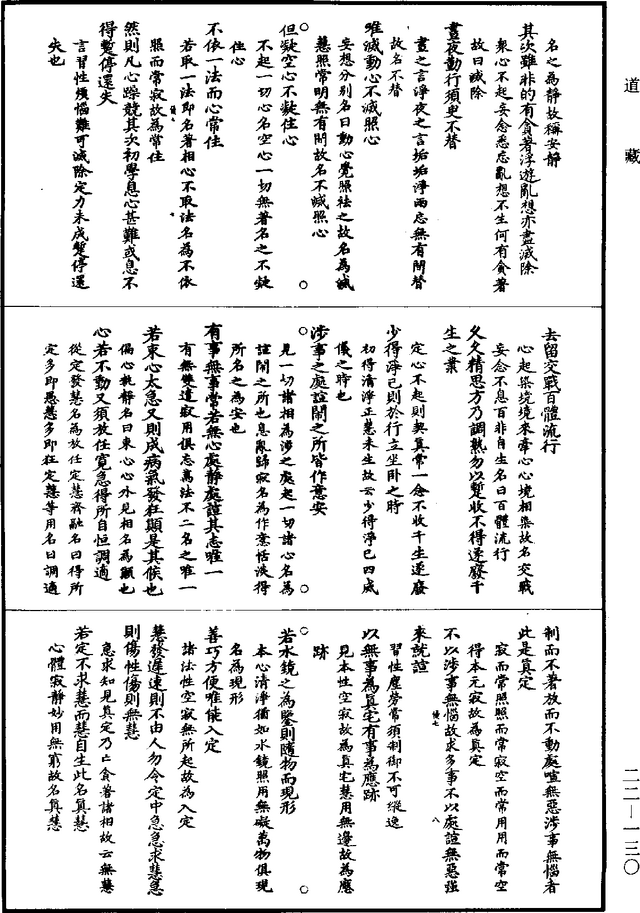 道藏
名之為靜故稱安靜
其次雖非的有貪著浮遊亂想亦盡滅除
衆心不起妄念悉忘亂想不生何有貪著
故曰滅除
晝夜勤行須臾不替
晝之言淨夜之言垢垢淨兩忘無有間替
故名不替
唯滅動心不滅照心
妄想分別名曰動心覺照祛之故名為滅
慧照常明無有間故名不滅照心
但凝空心不凝住心
不起一切心名空心一切無著名之不凝
住心
不依一法而心常住
若取一法即名著相心不取法名為不依
照而常寂故為常住
然則凡心躁競其次初學息心甚難或息不
得暫停還失
言習性煩惱難可滅除定力未成暫停還
失也
去留交戰百體流行
心起染境境來牽心心境相染故名交戰
妄念不息百非自生名曰百體流行
久久精思方乃調熟勿以暫收不得遂廢千
生之業
定心不起則契真常一念不收千生遂廢
少得淨已則於行立坐卧之時
初得清淨正慧未生故云少得淨已四威
儀之時也
涉事之處諠鬧之所皆作意安
見一切諸相為涉之處起一切諸心名為
諠鬧之所也息亂歸寂名為作意恬淡得
所名之為安也
有事無事常若無心處靜處諠其志唯一
有無雙遣寂用俱忘萬法不二名之唯一
若束心太急又則成病氣發狂顛是其候也
偏心執靜名曰束心心外見相名為顛也
心若不動又須放任寬急得所自恒調適
從定發慧名為放任定慧齊融名曰得所
定多即愚慧多即狂定慧等用名曰調適
制而不著放而不動處喧無惡涉事無惱者
此是真定
寂而常照照而常寂空而常用用而常空
得本元寂故為真定
不以涉事無惱故求多事不以處諠無惡強
來就諠
習性塵勞常須制御不可縱逸
以無事為真宅有事為應跡
見本性空寂故為真宅慧用無邊故為應
跡
若水鏡之為鑒則隨物而現形
本心清淨猶如水鏡照用無礙萬物俱現
名為現形
善巧方便唯能入定
諸法性空寂無所起故為入定
慧發遲速則不由人勿令定中急急求慧急
則傷性傷則無慧
急求知見真定乃亡貪著諸相故云無慧
若定不求慧而慧自生此名真慧
心體寂靜妙用無窮故名真慧
二二—一三〇